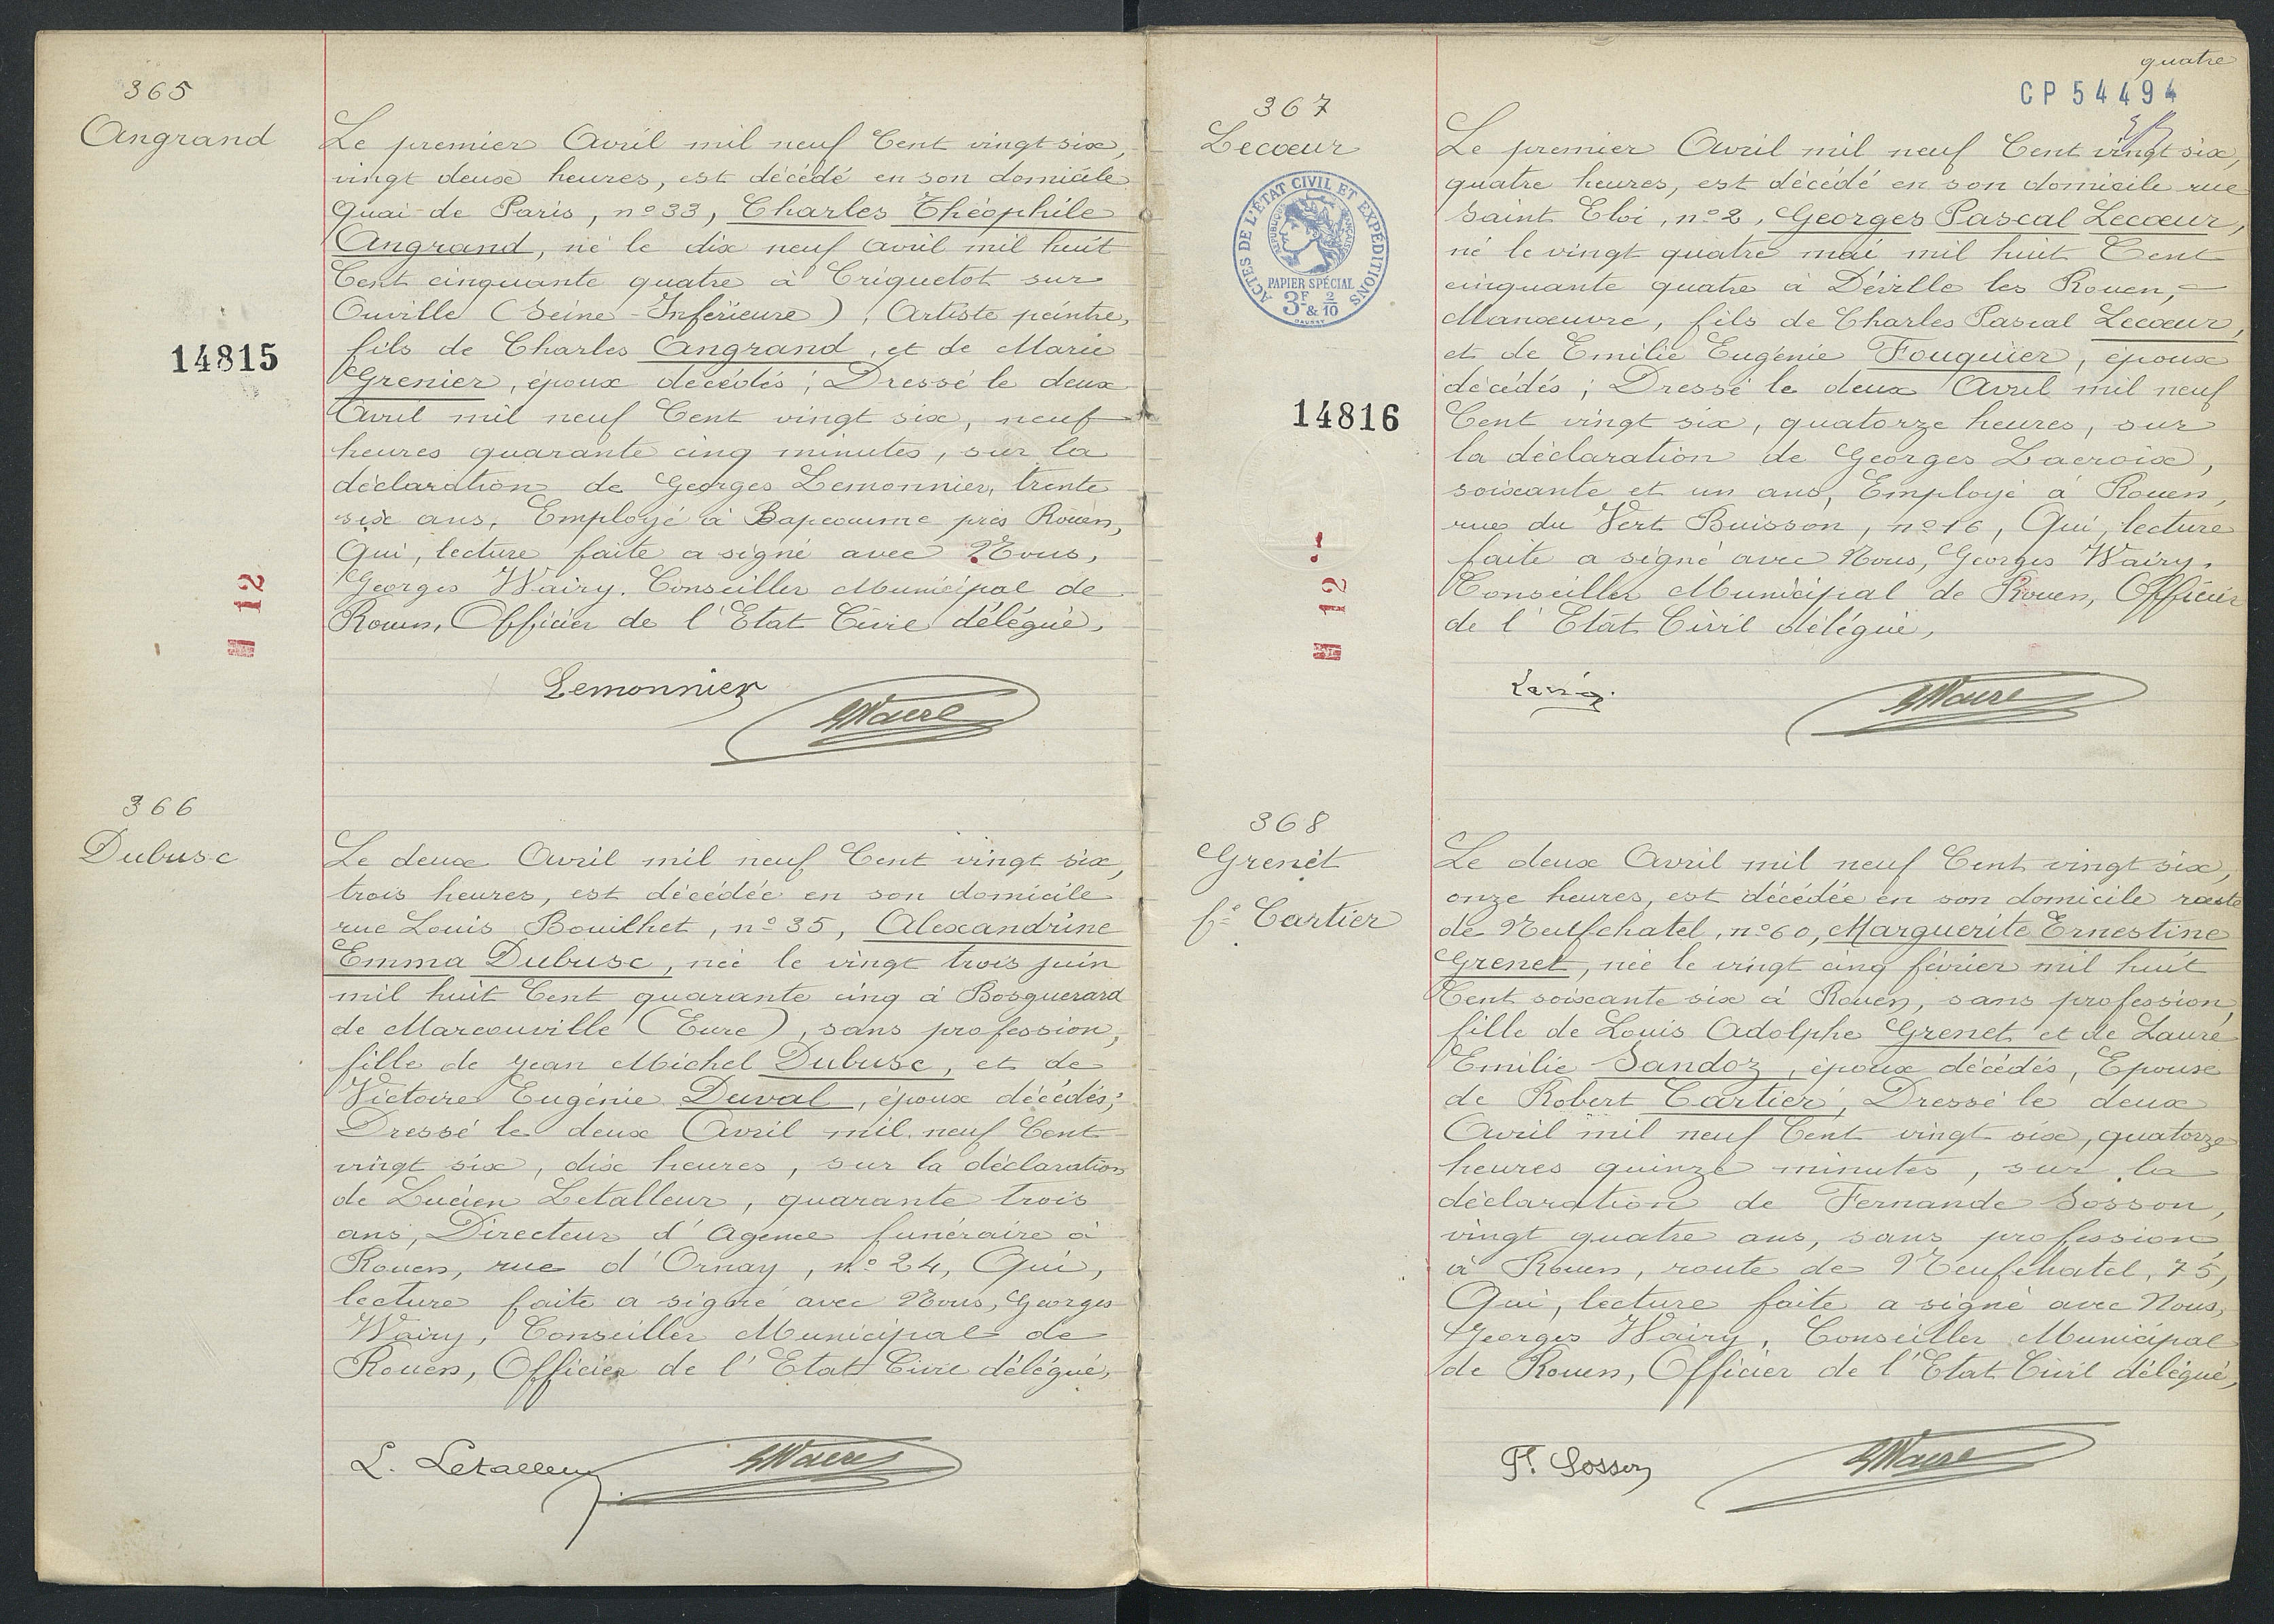 365
Angrand
Le premier Avril mil neuf Cent vingt six,
vingt deux heures, est décédé en son domicile
Quai de Paris, n° 33, Charles Théophile
Angrand, né le dix neuf avril mil huit
Cent cinquante quatre à Criquetot sur
Ouville (Seine-Inférieure), Artiste peintre,
fils de Charles Angrand, et de Marie
Grenier, époux décédés; Dressé le deux
Avril mil neuf Cent vingt six, neuf
heures quarante cinq minutes, sur la
déclaration de Georges Lemonnier, trente
six ans, Employé à Bapeaume près Rouen,
Qui, lecture faite a signé avec Nous,
Georges Wairy, Conseiller Municipal de
Rouen, Officier de l'Etat Civil délégué,
14815
12
Lemonnier
366
Dubusc
Le deux Avril mil neuf Cent vingt six,
trois heures, est décédée en son domicile
rue Louis Bouilhet, n° 35, Alexandrine
Emma Dubusc, née le vingt trois juin
mil huit Cent quarante cinq à Bosguerard
de Marcouville (Eure), sans profession,
fille de Jean Michel Dubusc, et de
Victoire Eugénie Duval, époux décédés;
Dressé le deux Avril mil neuf Cent
vingt six, dix heures, sur la déclaration
de Lucien Letalleur, quarante trois
ans, Directeur d'Agence funéraire à
Rouen, rue d'Ornay, n° 24, Qui,
lecture faite a signé avec Nous, Georges
Wairy, Conseiller Municipal de
Rouen, Officier de l'Etat Civil délégué,
L. Letalleur
quatre
CP 54494
367
Lecœur
ACTES DE L'ÉTAT CIVIL ET EXPÉDITIONS
RÉPUBLIQUE FRANÇAISE
PAPIER SPÉCIAL
3F & 2/10
14816
12
Le premier Avril mil neuf Cent vingt six,
quatre heures, est décédé en son domicile rue
Saint Eloi, n° 2, Georges Pascal Lecœur,
né le vingt quatre mai mil huit Cent
cinquante quatre à Déville les Rouen,
Manœuvre, fils de Charles Pascal Lecœur,
et de Emilie Eugénie Fouquier, époux
décédés; Dressé le deux Avril mil neuf
Cent vingt six, quatorze heures, sur
la déclaration de Georges Lacroix,
soixante et un ans, Employé à Rouen,
rue du Vert Buisson, n° 16, Qui, lecture
faite a signé avec Nous, Georges Wairy,
Conseiller Municipal de Rouen, Officier
de l'Etat Civil délégué,
368
Grenet
fe Cartier
Le deux Avril mil neuf Cent vingt six,
onze heures, est décédée en son domicile route
de Neufchatel, n° 60, Marguerite Ernestine
Grenet, née le vingt cinq février mil huit
Cent soixante six à Rouen, sans profession,
fille de Louis Adolphe Grenet et de Laure
Emilie Sandoz, époux décédés, Epouse
de Robert Cartier, Dressé le deux
Avril mil neuf Cent vingt six, quatorze
heures quinze minutes, sur la
déclaration de Fernande Sosson,
vingt quatre ans, sans profession
à Rouen, route de Neufchatel, 75,
Qui, lecture faite a signé avec Nous,
Georges Wairy, Conseiller Municipal
de Rouen, Officier de l'Etat Civil délégué,
F. Sosson